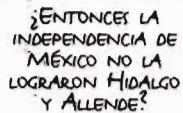 ¿ENTONCES LA
INDEPENDENCIA DE
MÉXICO NO LA
LOGRARON HIDALGO
Y ALLENDE?